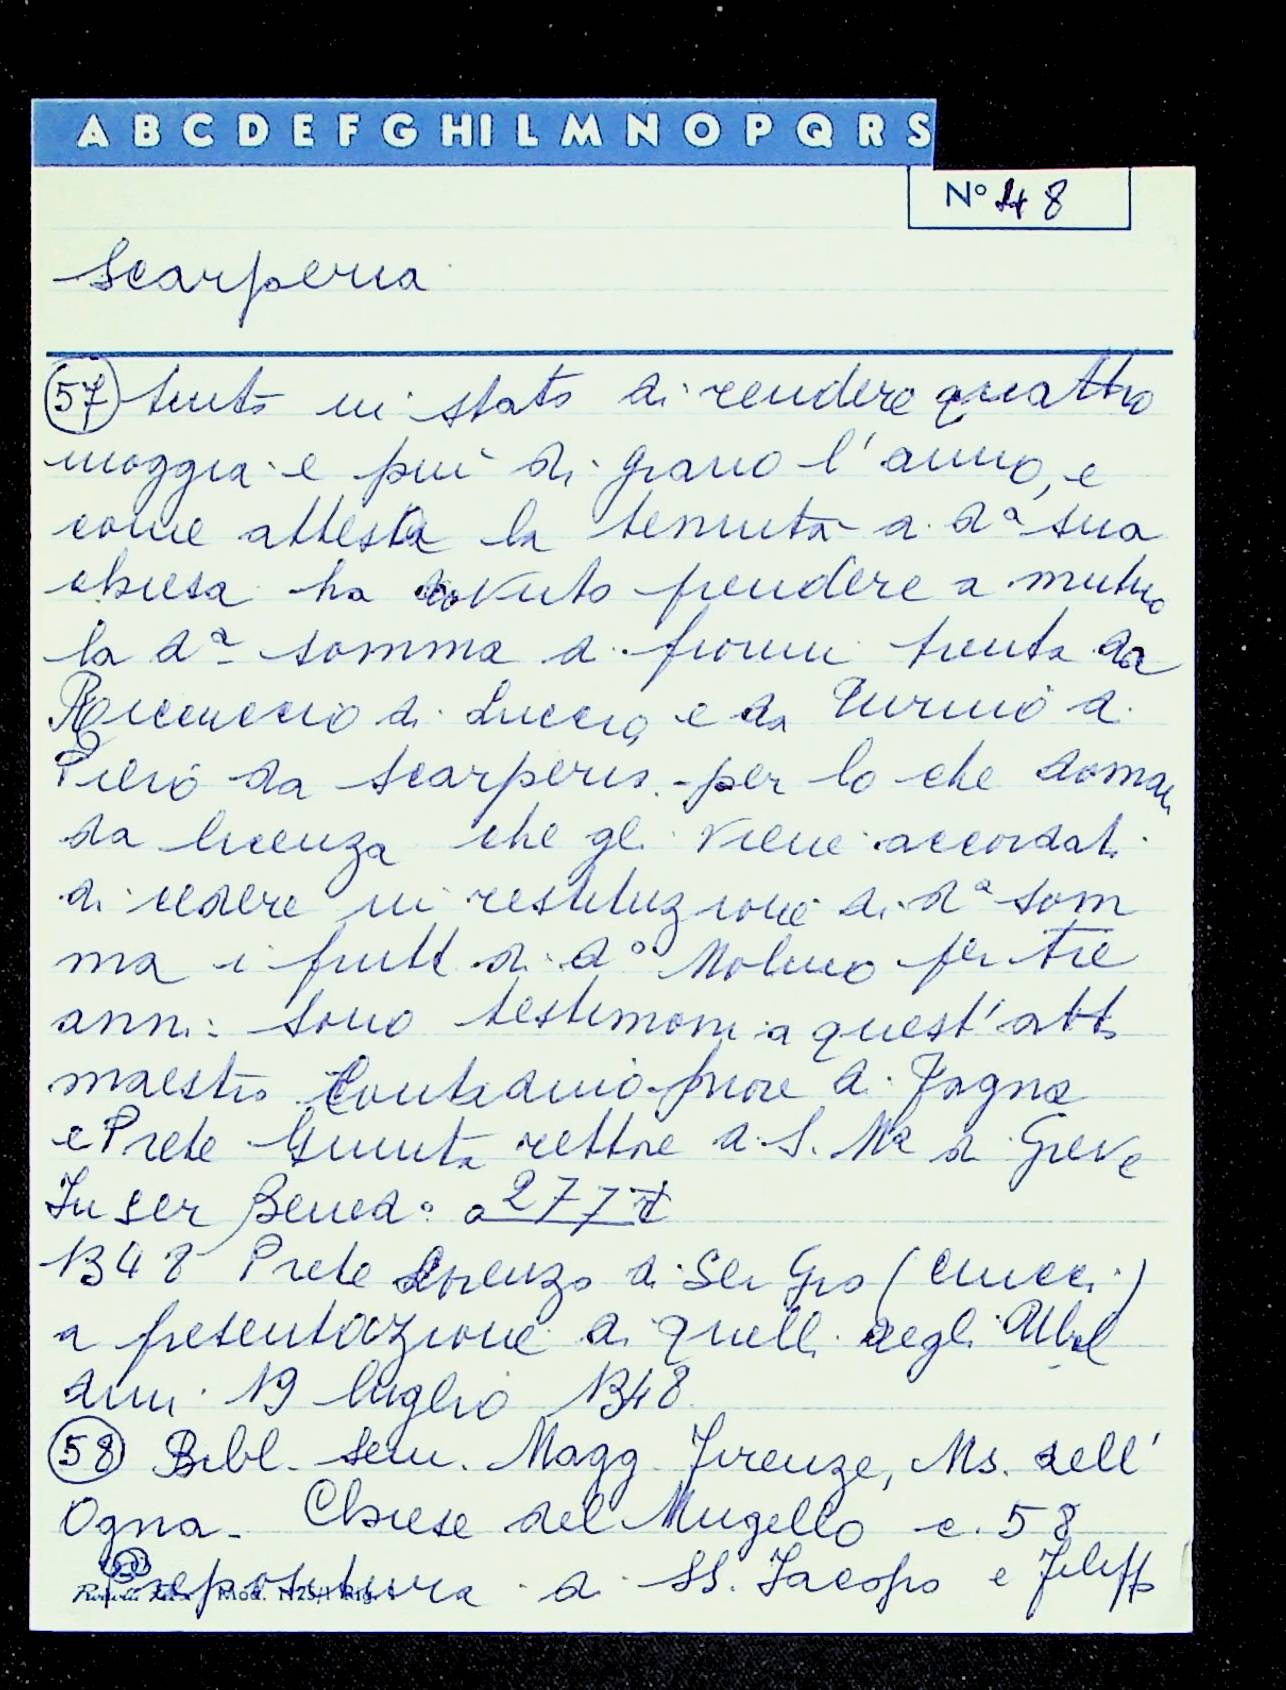 A B C D E F G H I L M N O P Q R S
N° 48
Scarperia
57 tutto in stato di rendere quattro
moggia e più di grano l'anno, e
come attesta la tenuta di da sua
chiesa ha dovuto prendere a mutuo
la da somma di fiorini trenta da
di Luccio, e da Turino di
Piero da Scarperia. - per lo che doman
da licenza che gli viene accordat.
di cedere in restituzione di da som
ma i frutti di do Molino per tre
anni: sono testimoni a quest'atto
maestro priore di Fagna
e Prete Giunta rettore di S. Ma a Greve
In ser Bened° a 277 t
1348 Prete Lorenzo di Ser Gio (Cnicci)
a presentazione di quelli degli Ubal
dini 19 luglio 1348
58 Bibl. Sem. Magg. Firenze, Ms. dell'
Ogna - Chiese del Mugello c. 58
Prepositura di SS. Jacopo e Filipp
Mod.